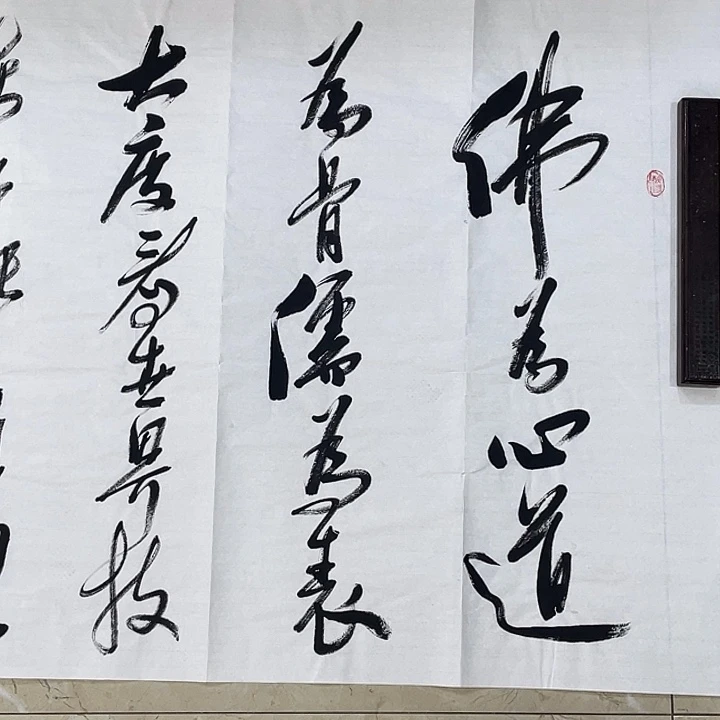 佛为心道
为骨儒为表
大度看世界技